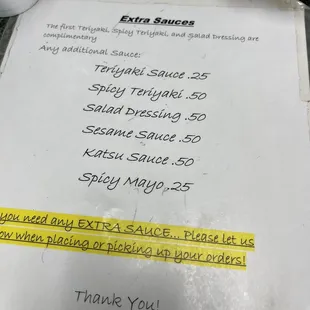 Extra Sauces
The first Teriyaki, Spicy Teriyaki, and Salad Dressing are
complimentary
Any additional Sauce:
Teriyaki Sauce .25
Spicy Teriyaki .50
Salad Dressing .50
Sesame Sauce .50
Katsu Sauce .50
Spicy Mayo .25
you need any EXTRA SAUCE... Please let us
ow when placing or picking up your orders!
Thank You!